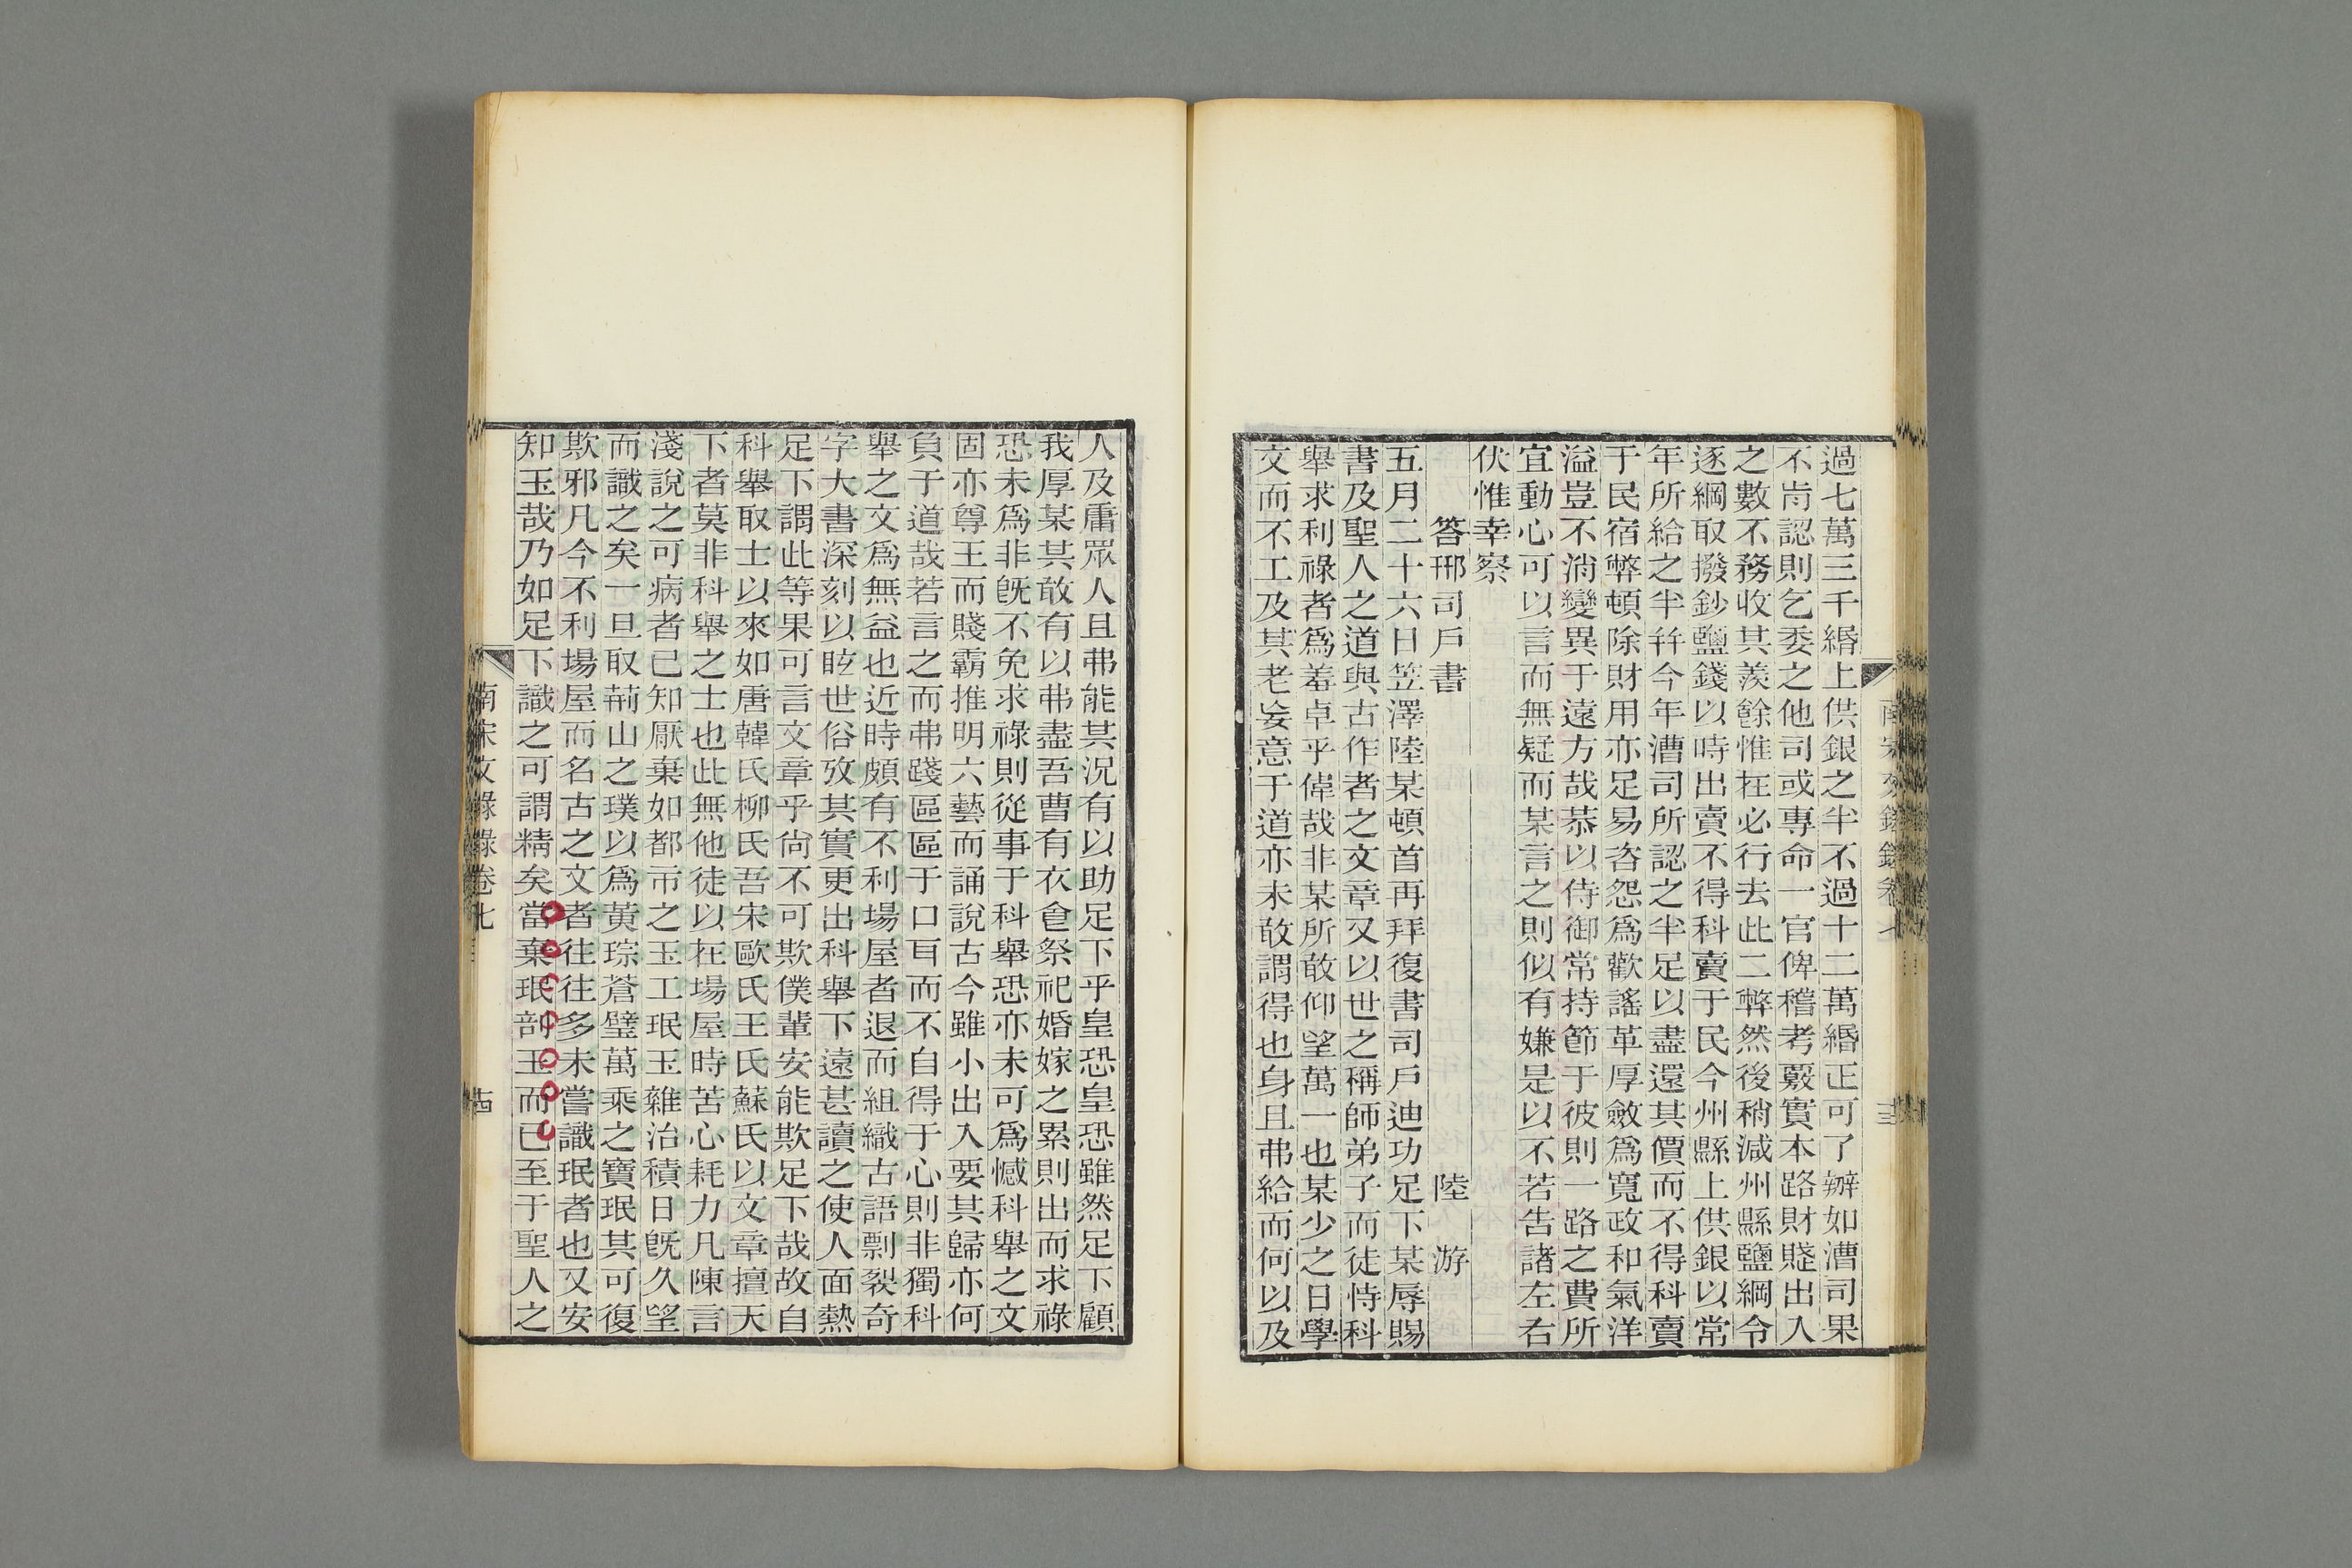 過七萬三千緡上供銀之半不過十二萬緡正可了辦如漕司果
不肯認則乞委之他司或專命一官俾稽考覈實本路財賦出入
之數不務收其羨餘惟在必行去此二弊然後稍減州縣鹽綱令
逐綱取撥鈔鹽錢以時出賣不得科賣于民今州縣上供銀以常
年所給之半幷今年漕司所認之半足以盡還其價而不得科賣
于民宿弊頓除財用亦足易咨怨爲歡謠革厚斂爲寬政和氣洋
溢豈不消變異于遠方哉恭以侍御常持節于彼則一路之費所
宜動心可以言而無疑而某言之則似有嫌是以不若告諸左右
伏惟幸察
答邢司戶書　陸游
五月二十六日笠澤陸某頓首再拜復書司戶迪功足下某辱賜
書及聖人之道與古作者之文章又以世之稱師弟子而徒恃科
舉求利祿者爲羞卓乎偉哉非某所敢仰望萬一也某少之日學
文而不工及其老妄意于道亦未敢謂得也身且弗給而何以及
人及庸眾人且弗能其況有以助足下乎皇恐皇恐雖然足下顧
我厚某其敢有以弗盡吾曹有衣食祭祀婚嫁之累則出而求祿
恐未爲非旣不免求祿則從事于科舉恐亦未可爲憾科舉之文
固亦尊王而賤霸推明六藝而誦說古今雖小出入要其歸亦何
負于道哉若言之而弗踐區區于口耳而不自得于心則非獨科
舉之文爲無益也近時頗有不利場屋者退而組織古語剽裂奇
字大書深刻以眩世俗攷其實更出科舉下遠甚讀之使人面熱
足下謂此等果可言文章乎尙不可欺僕輩安能欺足下哉故自
科舉取士以來如唐韓氏柳氏吾宋歐氏王氏蘇氏以文章擅天
下者莫非科舉之士也此無他徒以在場屋時苦心耗力凡陳言
淺說之可病者已知厭棄如都市之玉工珉玉雜治積日旣久望
而識之矣一旦取荊山之璞以爲黃琮蒼璧萬乘之寶珉其可復
欺邪凡今不利場屋而名古之文者往往多未嘗識珉者也又安
知玉哉乃如足下識之可謂精矣當棄珉剖玉而已至于聖人之
南宋文錄錄卷七
十四